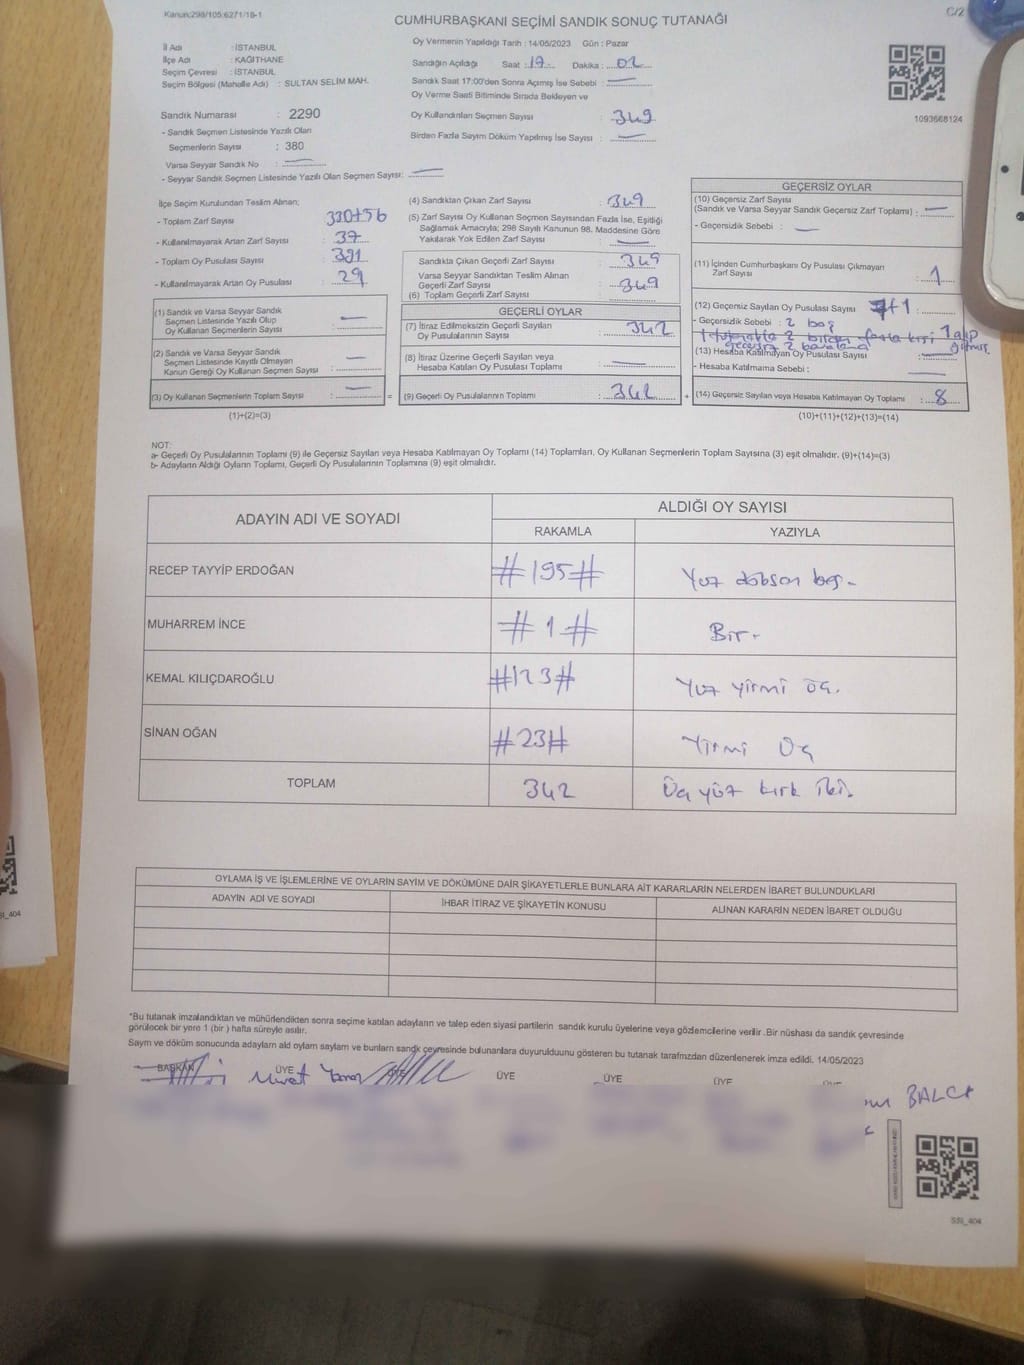 Kanun:298/105:6271/18-1
C/2
CUMHURBAŞKANI SEÇİMİ SANDIK SONUÇ TUTANAĞI
İl Adı : İSTANBUL
İlçe Adı : KAĞITHANE
Seçim Çevresi : İSTANBUL
Seçim Bölgesi (Mahalle Adı) : SULTAN SELİM MAH.
Sandık Numarası : 2290
- Sandık Seçmen Listesinde Yazılı Olan
Seçmenlerin Sayısı : 380
Varsa Seyyar Sandık No : —
- Seyyar Sandık Seçmen Listesinde Yazılı Olan Seçmen Sayısı: —
Oy Vermenin Yapıldığı Tarih : 14/05/2023 Gün : Pazar
Sandığın Açıldığı Saat : 17 Dakika : 02
Sandık Saat 17:00'den Sonra Açımış İse Sebebi : —
Oy Verme Saati Bitiminde Sırada Bekleyen ve
Oy Kullandırılan Seçmen Sayısı : 349
Birden Fazla Sayım Döküm Yapılmış İse Sayısı : —
1093668124
İlçe Seçim Kurulundan Teslim Alınan;
- Toplam Zarf Sayısı 330+56
- Kullanılmayarak Artan Zarf Sayısı : 37
- Toplam Oy Pusulası Sayısı : 391
- Kullanılmayarak Artan Oy Pusulası : 29
(1) Sandık ve Varsa Seyyar Sandık
Seçmen Listesinde Yazılı Olup
Oy Kullanan Seçmenlerin Sayısı : —
(2) Sandık ve Varsa Seyyar Sandık
Seçmen Listesinde Kayıtlı Olmayan
Kanun Gereği Oy Kullanan Seçmen Sayısı : —
(3) Oy Kullanan Seçmenlerin Toplam Sayısı : — =
(1)+(2)=(3)
(4) Sandıktan Çıkan Zarf Sayısı : 349
(5) Zarf Sayısı Oy Kullanan Seçmen Sayısından Fazla İse, Eşitliği
Sağlamak Amacıyla; 298 Sayılı Kanunun 98. Maddesine Göre
Yakılarak Yok Edilen Zarf Sayısı : —
Sandıkta Çıkan Geçerli Zarf Sayısı : 349
Varsa Seyyar Sandıktan Teslim Alınan
Geçerli Zarf Sayısı : 349
(6) Toplam Geçerli Zarf Sayısı :
GEÇERLİ OYLAR
(7) İtiraz Edilmeksizin Geçerli Sayılan
Oy Pusulalarının Sayısı : 342
(8) İtiraz Üzerine Geçerli Sayılan veya
Hesaba Katılan Oy Pusulası Toplamı : —
(9) Geçerli Oy Pusulalarının Toplamı : 342 +
GEÇERSİZ OYLAR
(10) Geçersiz Zarf Sayısı
(Sandık ve Varsa Seyyar Sandık Geçersiz Zarf Toplamı) : —
- Geçersizlik Sebebi : —
(11) İçinden Cumhurbaşkanı Oy Pusulası Çıkmayan
Zarf Sayısı : 1
(12) Geçersiz Sayılan Oy Pusulası Sayısı 7+1 :
- Geçersizlik Sebebi : 2 boş
2 birden fazla kişi 1
geçersiz 2
(13) Hesaba Katılmayan Oy Pusulası Sayısı : —
- Hesaba Katılmama Sebebi : —
(14) Geçersiz Sayılan veya Hesaba Katılmayan Oy Toplamı : 8
(10)+(11)+(12)+(13)=(14)
NOT:
a- Geçerli Oy Pusulalarının Toplamı (9) ile Geçersiz Sayılan veya Hesaba Katılmayan Oy Toplamı (14) Toplamları, Oy Kullanan Seçmenlerin Toplam Sayısına (3) eşit olmalıdır. (9)+(14)=(3)
b- Adayların Aldığı Oyların Toplamı, Geçerli Oy Pusulalarının Toplamına (9) eşit olmalıdır.
ADAYIN ADI VE SOYADI
ALDIĞI OY SAYISI
RAKAMLA YAZIYLA
RECEP TAYYİP ERDOĞAN #195# Yüz doksan beş -
MUHARREM İNCE #1# Bir -
KEMAL KILIÇDAROĞLU #123# Yüz yirmi üç.
SİNAN OĞAN #23# Yirmi üç
TOPLAM 342 Üç yüz kırk iki.
OYLAMA İŞ VE İŞLEMLERİNE VE OYLARIN SAYIM VE DÖKÜMÜNE DAİR ŞİKAYETLERLE BUNLARA AİT KARARLARIN NELERDEN İBARET BULUNDUKLARI
ADAYIN ADI VE SOYADI İHBAR İTİRAZ VE ŞİKAYETİN KONUSU ALINAN KARARIN NEDEN İBARET OLDUĞU
*Bu tutanak imzalandıktan ve mühürlendikten sonra seçime katılan adayların ve talep eden siyasi partilerin sandık kurulu üyelerine veya gözlemcilerine verilir .Bir nüshası da sandık çevresinde
görülecek bir yere 1 (bir ) hafta süreyle asılır.
Sayım ve döküm sonucunda adayların ald oyların sayların ve bunların sandık çevresinde bulunanlara duyurulduunu gösteren bu tutanak tarafmzdan düzenlenerek imza edildi. 14/05/2023
BAŞKAN ÜYE ÜYE ÜYE ÜYE ÜYE
Murat
BALCI
SSI_404